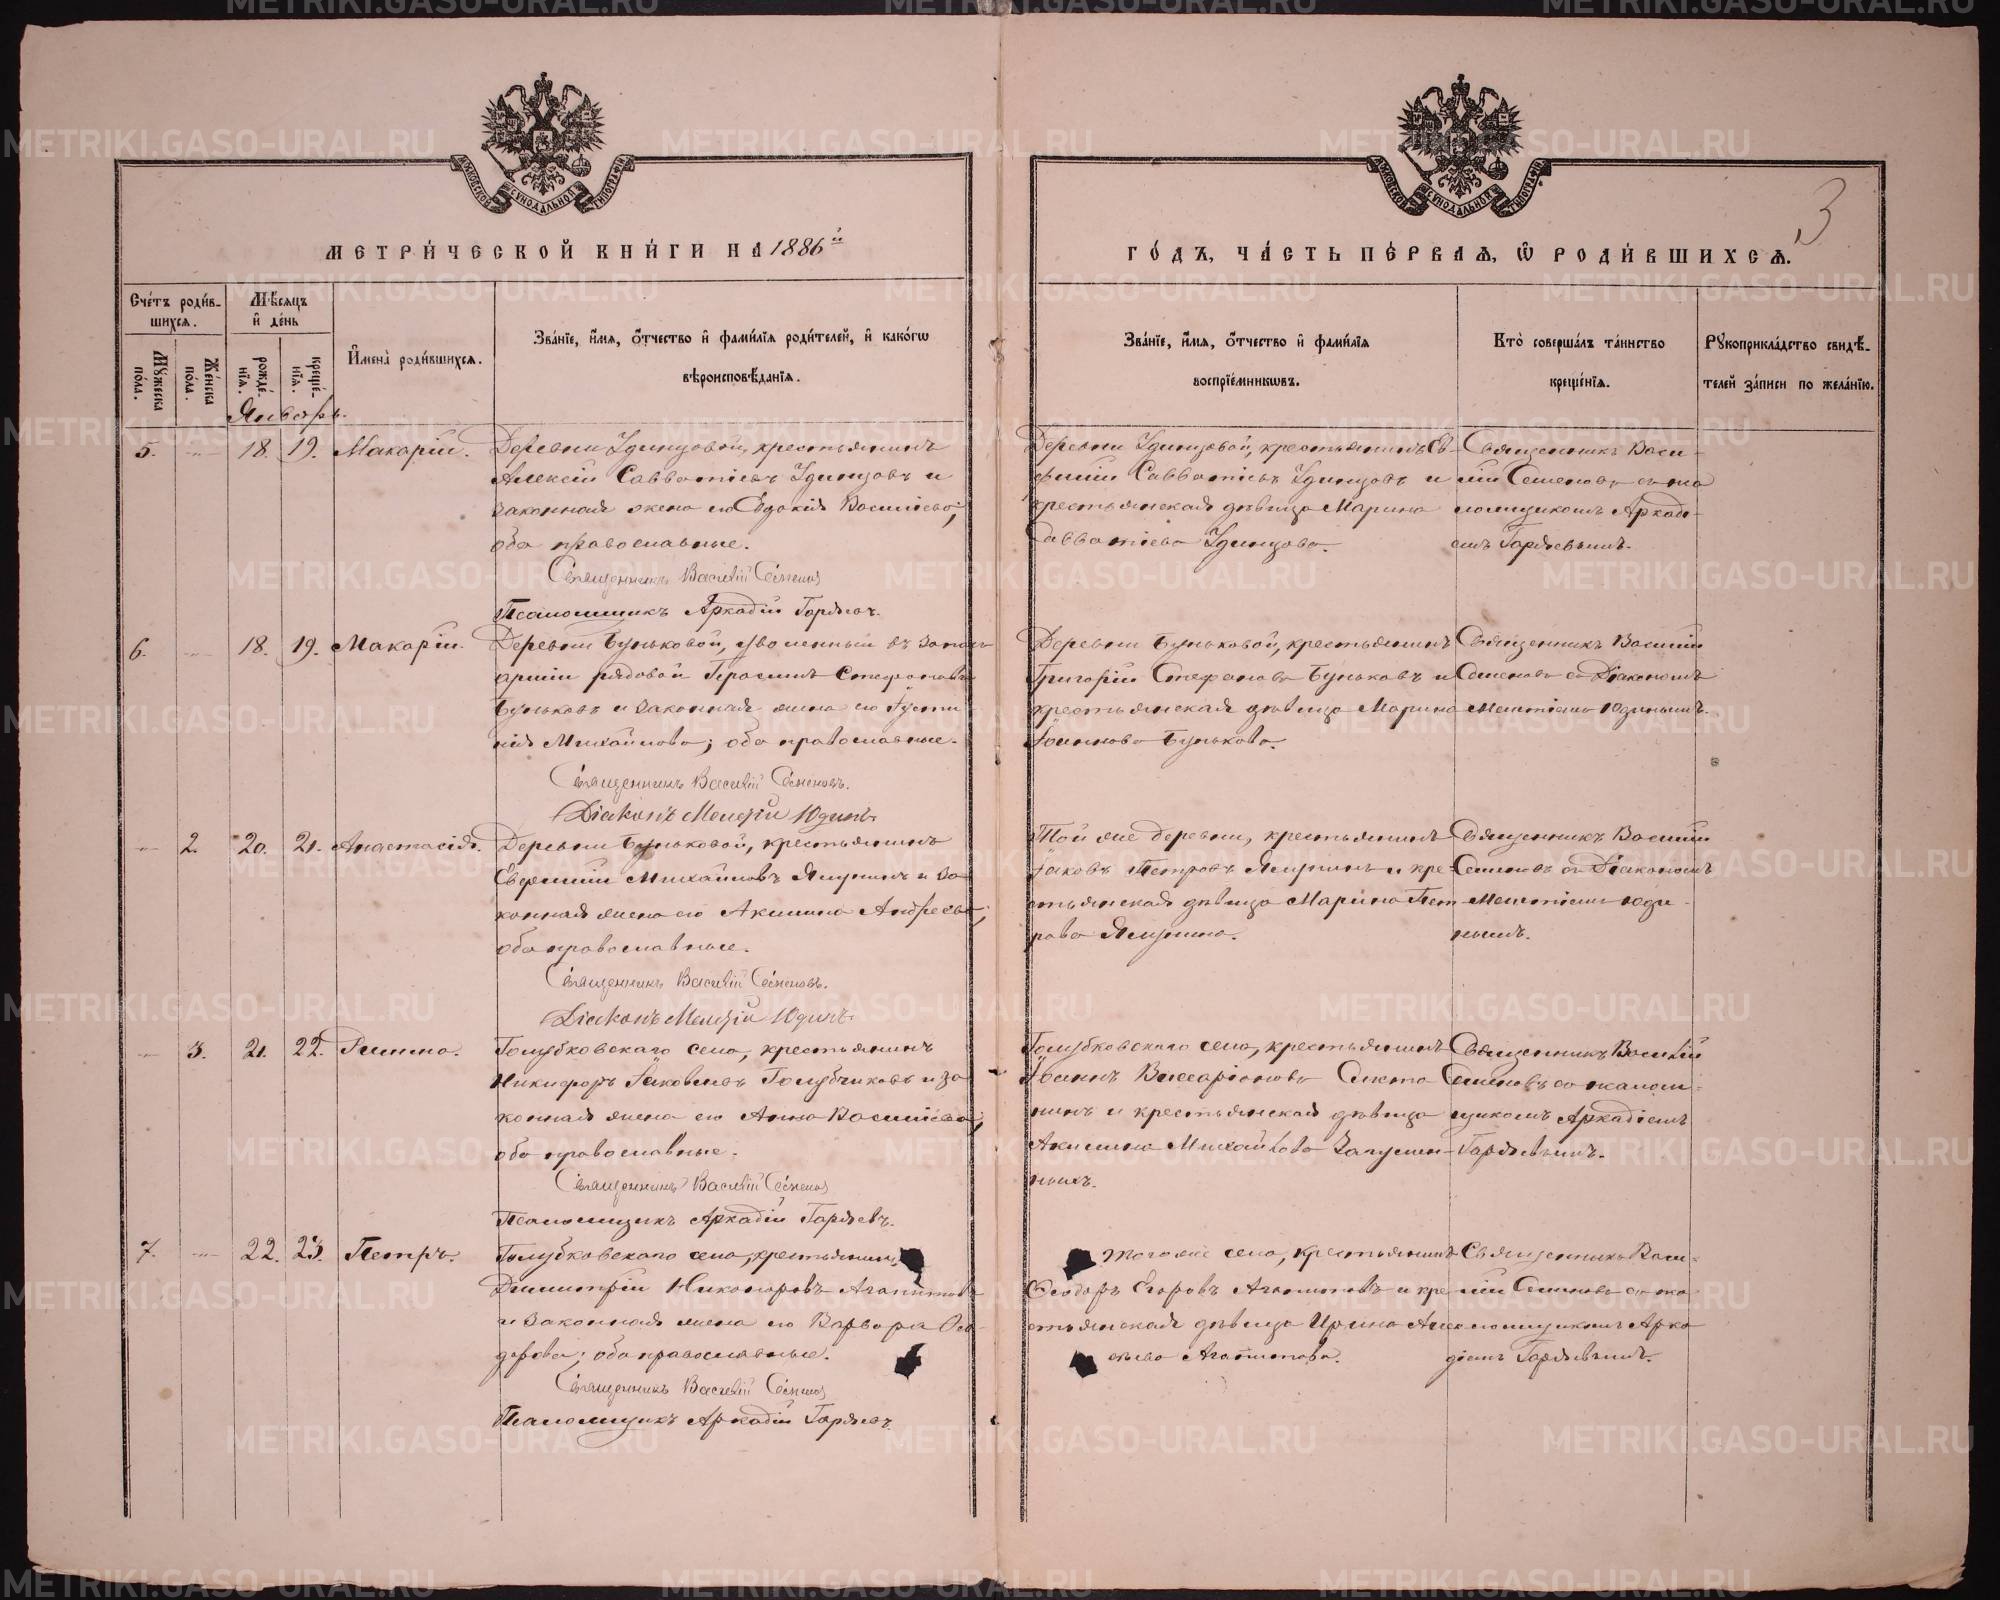 МЕТРИ́ЧЕСКОЙ КНИ́ГИ НА 1886й
ГО́ДЪ, ЧА́СТЬ ПЕ́РВАЯ, Ѽ РОДИ́ВШИХСЯ.
3
Сче́тъ роди́в-
шихся.
Мѣ́сяцъ
и де́нь
Мꙋжеска по́ла.
Же́нска по́ла.
рожде́нїя.
креще́нїя.
Имена̀ роди́вшихся.
Зва́нїе, и́мя, о́тчество и фами́лїя роди́телей, и како́гѡ
вѣроисповѣ́данїя.
Зва́нїе, и́мя, о́тчество и фами́лїя
воспрїе́мникѡвъ.
Кто̀ соверша́лъ та́инство
креще́нїя.
Рꙋкоприкла́дство свидѣ́-
телей за́писи по жела́нїю.
Январь.
5. 18. 19. Макарій.
Деревни Удинцовой, крестьянинъ
Алексій Савватіевъ Удинцовъ и
законная жена его Евдокія Васильева;
оба православные.
Священникъ Василій Семенов
Псаломщикъ Аркадій Гордѣевъ.
Деревни Удинцовой, крестьянинъ Ев-
фимій Савватіевъ Удинцовъ и
крестьянская дѣвица Марина
Савватіева Удинцова.
Священникъ Васи-
лій Семеновъ съ пса
ломщикомъ Аркаді-
емъ Гордѣевымъ.
6. 18. 19. Макарій.
Деревни Буньковой, уволенный въ запас
арміи рядовой Герасимъ Стефановъ
Буньковъ и законная жена его Іусти
нія Михайлова; оба православные.
Священникъ Василій Семеновъ.
Діаконъ Мелетій Юдинъ.
Деревни Буньковой, крестьянинъ
Григорій Стефановъ Буньковъ и
крестьянская дѣвица Марина
Іоаннова Бунькова.
Священникъ Василій
Семеновъ съ Діакономъ
Мелетіемъ Юдинымъ.
2. 20. 21. Анастасія.
Деревни Буньковой, крестьянинъ
Евфимій Михайловъ Ямулинъ и за
конная жена его Акилина Андреева;
оба православные.
Священникъ Василій Семеновъ.
Діаконъ Мелетій Юдинъ.
Той же деревни, крестьянинъ
Іаковъ Петровъ и кре-
стьянская дѣвица Марина Пет
рова
Священникъ Василій
Семеновъ съ Діакономъ
Мелетіемъ Юди-
нымъ.
3. 21. 22. Римма.
Голубковскаго села, крестьянинъ
Никифоръ Іаковлевъ Голубчиковъ и за
конная жена его Анна Васильева;
оба православные.
Священникъ Василій Семенов
Псаломщикъ Аркадій Гордѣевъ.
Голубковскаго села, крестьянинъ
Іоаннъ Виссаріоновъ
нинъ и крестьянская дѣвица
Акилина Михайлова
ныхъ.
Священникъ Василій
Семеновъ со псалом-
щикомъ Аркадіемъ
Гордѣевымъ.
7. 22. 23. Петръ.
Голубковскаго села, крестьянин
Димитрій Никаноровъ Агапитовъ
и законная жена его Варвара Ѳео-
дорова; оба православные.
Священникъ Василій Семенов
Псаломщикъ Аркадій Гордѣевъ.
Тогоже села, крестьянинъ
Ѳеодоръ Егоровъ Агапитовъ и кре
стьянская дѣвица Ирина Але
ѣева Агапитова.
Священникъ Васи-
лій Семеновъ со пса-
ломщикомъ Арка
діемъ Гордѣевымъ.